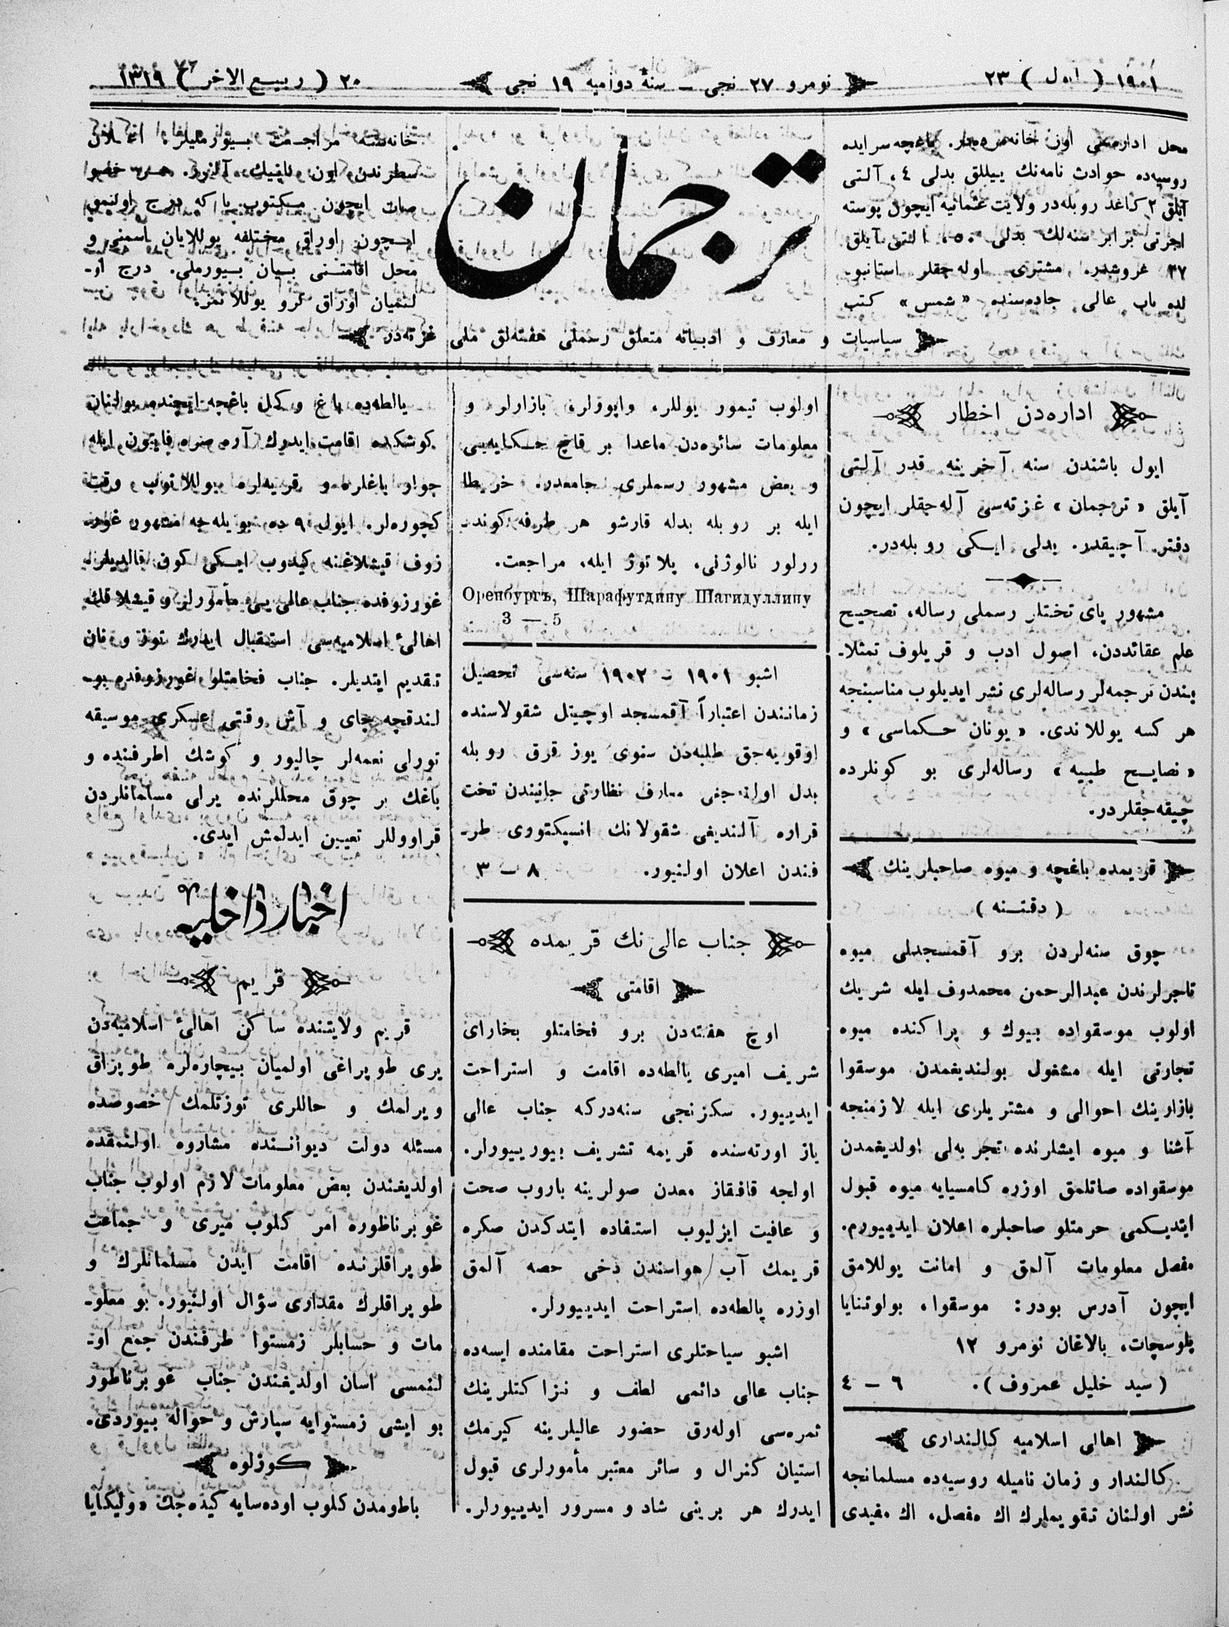 ١٩٠١ ( ايول ) ٢٣
نومرو ٢٧ نجى — سنۀ دواميه ١٩ نجى
٢٠ ( ربيع الاخر ) ١٣١٩
محل اداره‌سى اوز خانه‌مزده‌در. باغچه سرايده
روسيه‌ده حوادث نامه‌نك ييللق بدلى ٤، آلتى
آيلق ٢ كاغد روبله‌در ولايت عثمانيه ايچون پوسته
اجرتى برابر سنه‌لك بدلى ٥٠، التى آيلق
٢٧ غروشدر. مشترى اوله‌جقلر استانبو-
لده باب عالى جاده‌سنده «شمس» كتب
ترجمان
خانه‌سنه مراجعت بيورمليلر. اعلان
سطرندن اون قاپيك آلنير.
صات ايچون مكتوب يا كه درج اولنمق
ايچون اوراق مختلفه يوللايان اسمنى و
محل اقامتنى بيان بيورملى. درج او-
لنميان اوراق كرو يوللانمز.
سياسيات و معارف و ادبياته متعلق رسملى هفته‌لق ملى غزته‌در
اداره‌دن اخطار
ايول باشندن سنه آخرينه قدر آلتى
آيلق «ترجمان» غزته‌سى آله‌جقلر ايچون
دفتر آچيقدر. بدلى ايكى روبله‌در.
مشهور پاى تختلر رسملى رساله، تصحيح
علم عقائددن، اصول ادب و قريلوف تمثلا-
يندن ترجمه‌لر رساله‌لرى نشر ايديلوب مناسبنجه
هر كسه يوللاندى. «يونان حكماسى» و
«نصايح طبيه» رساله‌لرى بو كونلرده
چيقه‌جقلردر.
قريمده باغچه و ميوه صاحبلرينك
( دقتنه )
چوق سنه‌لردن برو آقمسجدلى ميوه
تاجرلرندن عبدالرحمن محمدوف ايله شريك
اولوب موسقواده بيوك و پراكنده ميوه
تجارتى ايله مشغول بولنديغمدن موسقوا
بازارينك احوالى و مشتريلرى ايله لازمنجه
آشنا و ميوه ايشلرنده تجربه‌لى اولديغمدن
موسقواده صاتلمق اوزره كامسيايه ميوه قبول
ايتديكمى حرمتلو صاحبلره اعلان ايديبورم.
مفصل معلومات آلمق و امانت يوللامق
ايچون آدرس بودر: موسقوا، بولوتنايا
پلوسچات، بالاغان نومرو ١٢
(سيد خليل عمروف). ٦ — ٤
اهالى اسلاميه كالندارى
كالندار و زمان ناميله روسيه‌ده مسلمانجه
نشر اولنان تقويملرك اك مفصل، اك مفيدى
اولوب تيمور يوللر، واپورلر، بازارلر و
معلومات سائره‌دن ماعدا بر قاچ حكايه‌يى
و بعض مشهور رسملرى جامعدر. خريطا
ايله بر روبله بدله قارشو هر طرفه كوند-
ررلور نالوژنى، پلاتوژ ايله، مراجعت.
Оренбургъ, Шарафутдину Шагидуллину
3 — 5
اشبو ١٩٠١ — ١٩٠٢ سنه‌سى تحصيل
زمانندن اعتباراً آقمسجد اوچيتل شقولاسنده
اوقويه‌جق طلبه‌دن سنوى يوز قرق روبله
بدل اولنه‌جغى معارف نظارتى جانبندن تحت
قراره آلنديغى شقولانك انسپكتورى طر-
فندن اعلان اولنيور. ٨ — ٣
جناب عالى نك قريمده
اقامتى
اوچ هفته‌دن برو فخامتلو بخاراى
شريف اميرى يالطه‌ده اقامت و استراحت
ايدييور. سكزنجى سنه‌دركه جناب عالى
ياز اورته‌سنده قريمه تشريف بيوريبورلر.
اولجه قافقاز معدن صولرينه باروب صحت
و عافيت ايزليوب استفاده ايتدكدن صكره
قريمك آب/هواسندن دخى حصه آلمق
اوزره يالطه‌ده استراحت ايدييورلر.
اشبو سياحتلرى استراحت مقامنده ايسه‌ده
جناب عالى دائمى لطف و نزاكتلرينك
ثمره‌سى اوله‌رق حضور عاليلرينه كيرمك
استيان كنرال و سائر معتبر مأمورلرى قبول
ايدرك هر برينى شاد و مسرور ايدييورلر.
يالطه‌ده باغ و كل باغچه ايچنده بولنان
كوشكده اقامت ايدرك آره صره فايتون ايله
جوار باغلره و قريه‌لره يوللانوب وقت
كچوره‌لر. ايول ٩ ده، بويله‌جه مشهور غور-
زوف قيشلاغنه كيدوب ايكى كون قالديلر.
غورزوفده جناب عالى يى مأمورلر و قيشلاقك
اهالئ اسلاميه‌سى استقبال ايدرك توز و نان
تقديم ايتديلر. جناب فخامتلو غورزوفده بو-
لندقچه چاى و آش وقتى عسكرى موسيقه
تورلى نغمه‌لر چاليور و كوشك اطرفنده و
باغك بر چوق محللرنده يرلى مسلمانلردن
قراووللر تعيين ايدلمش ايدى.
اخبار داخليه
قريم
قريم ولايتنده ساكن اهالئ اسلاميه‌دن
يرى طوپراغى اولميان بيچاره‌لره طوپراق
ويرلمك و حاللرى توزتلمك خصوصده
مسئله دولت ديوانننده مشاروه اولنمقده
اولديغندن بعض معلومات لازم اولوب جناب
غوبرناطوره امر كلوب ميرى و جماعت
طوپراقلرنده اقامت ايدن مسلمانلرك و
طوپراقلرك مقدارى سؤال اولنيور. بو معلو-
مات و حسابلر زمستوا طرفندن جمع او-
لنمسى اسان اولديغندن جناب غوبرناطور
بو ايشى زمستوايه سپارش و حواله بيوردى.
كوزلوه
باطومدن كلوب اوده‌سايه كيده‌جك «وليكايا